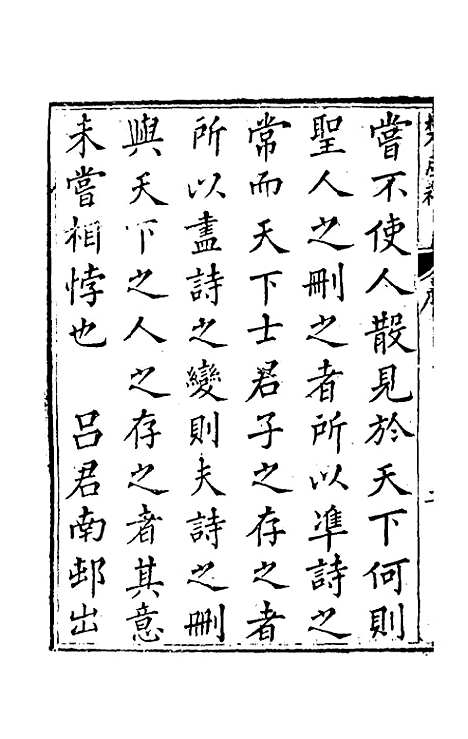 嘗不使人散見於天下何則
聖人之刪之者所以準詩之
常而天下士君子之存之者
所以盡詩之變則夫詩之刪
與天下之人之存之者其意
未嘗相悖也　呂君南邨出